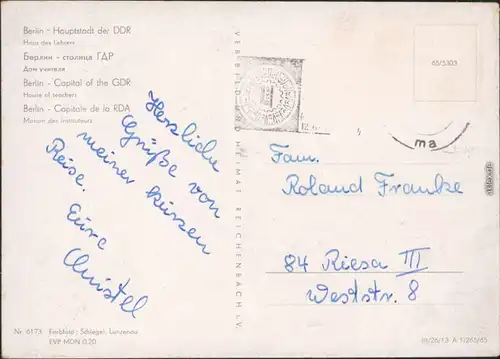 Berlin - Hauptstadt der DDR
Haus des Lehrers
Берлин - столица ГДР
Дом учителя
Berlin - Capital of the GDR
House of teachers
Berlin - Capitale de la RDA
Maison des instituteurs
Herzliche
Grüße von
meiner kurzen
Reise.
Eure
Christel
Nr. 6173 Farbfoto: Schlegel, Lunzenau
EVP MDN 0.20
VERB BILD UND HEIMAT REICHENBACH I. V.
65/5303
ma
Fam.
Roland Franke
84 Riesa III
Weststr. 8
III/26/13 A 1/265/65